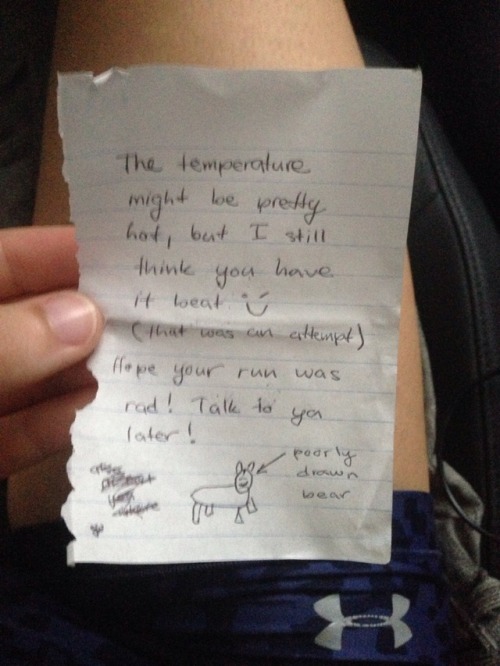 The temperature
might be pretty
hot, but I still
think you have
it beat
(that was an attempt)
Hope your run was
rad! Talk to ya
later!
poorly
drawn
bear